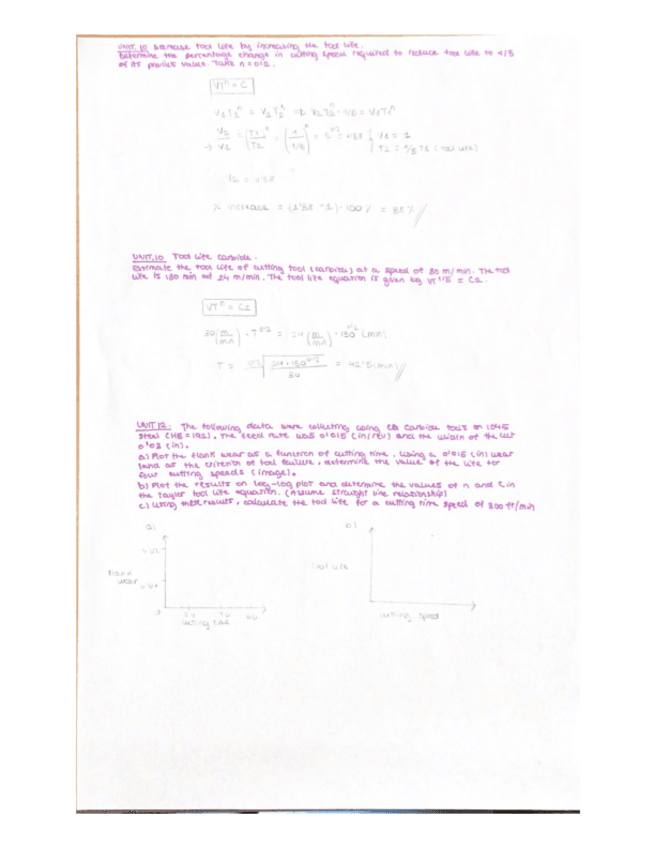 UNIT.10 Increase tool life by increasing the tool life.
Determine the percentage change in cutting speed required to reduce tool life to 1/5
of its previous value. Take n = 0'2.
VT^n = C
V1 T1^n = V2 T2^n
V2/V1 = (T1/T2)^n = (1/1/5)^n = 5^0'2 = 1'38 V1 = 1
T2 = 1/5 T1 (tool life)
V2 = 1'38
% increase = (1'38 - 1) · 100% = 38%
UNIT.10 Tool life carbide.
Estimate the tool life of cutting tool (carbide) at a speed of 30 m/min. The tool
life is 180 min at 24 m/min. The tool life equation is given by VT^1/5 = C1.
VT^n = C1
30 (m/min) · T^0'2 = 24 (m/min) · 180^0'2 (min)
T =
UNIT 12: The following data were collecting using CB carbide tools on 1045
steel (HB = 192). The feed rate was 0'015 (in/rev) and the width of the cut
0'03 (in).
a) Plot the flank wear as a function of cutting time. Using a 0'015 (in) wear
land as the criterion of tool failure, determine the value of the life for
four cutting speeds (image).
b) Plot the results on log-log plot and determine the values of n and C in
the taylor tool life equation. (Assume straight line relationship)
c) Using these results, calculate the tool life for a cutting time speed of 300 ft/min
a) b)
Flank
wear
Tool life
20 40 60
cutting time
cutting speed